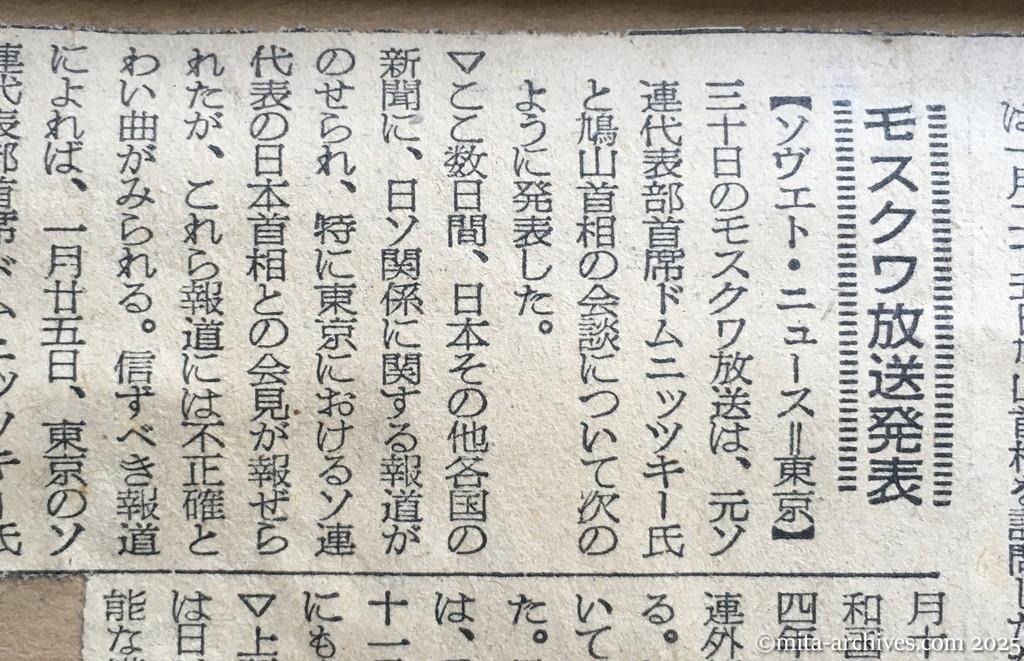 モスクワ放送発表
【ソヴエト・ニュース＝東京】
三十日のモスクワ放送は、元ソ
連代表部首席ドムニッツキー氏
と鳩山首相の会談について次の
ように発表した。
▽ここ数日間、日本その他各国の
新聞に、日ソ関係に関する報道が
のせられ、特に東京におけるソ連
代表の日本首相との会見が報ぜら
れたが、これら報道には不正確と
わい曲がみられる。信ずべき報道
によれば、一月廿五日、東京のソ
連代表部首席ドムニッツキー氏
月十
四年
連外
る。
いて
た。
は、
十一
にも
▽上
は日
能な
©mita-archives.com 2025